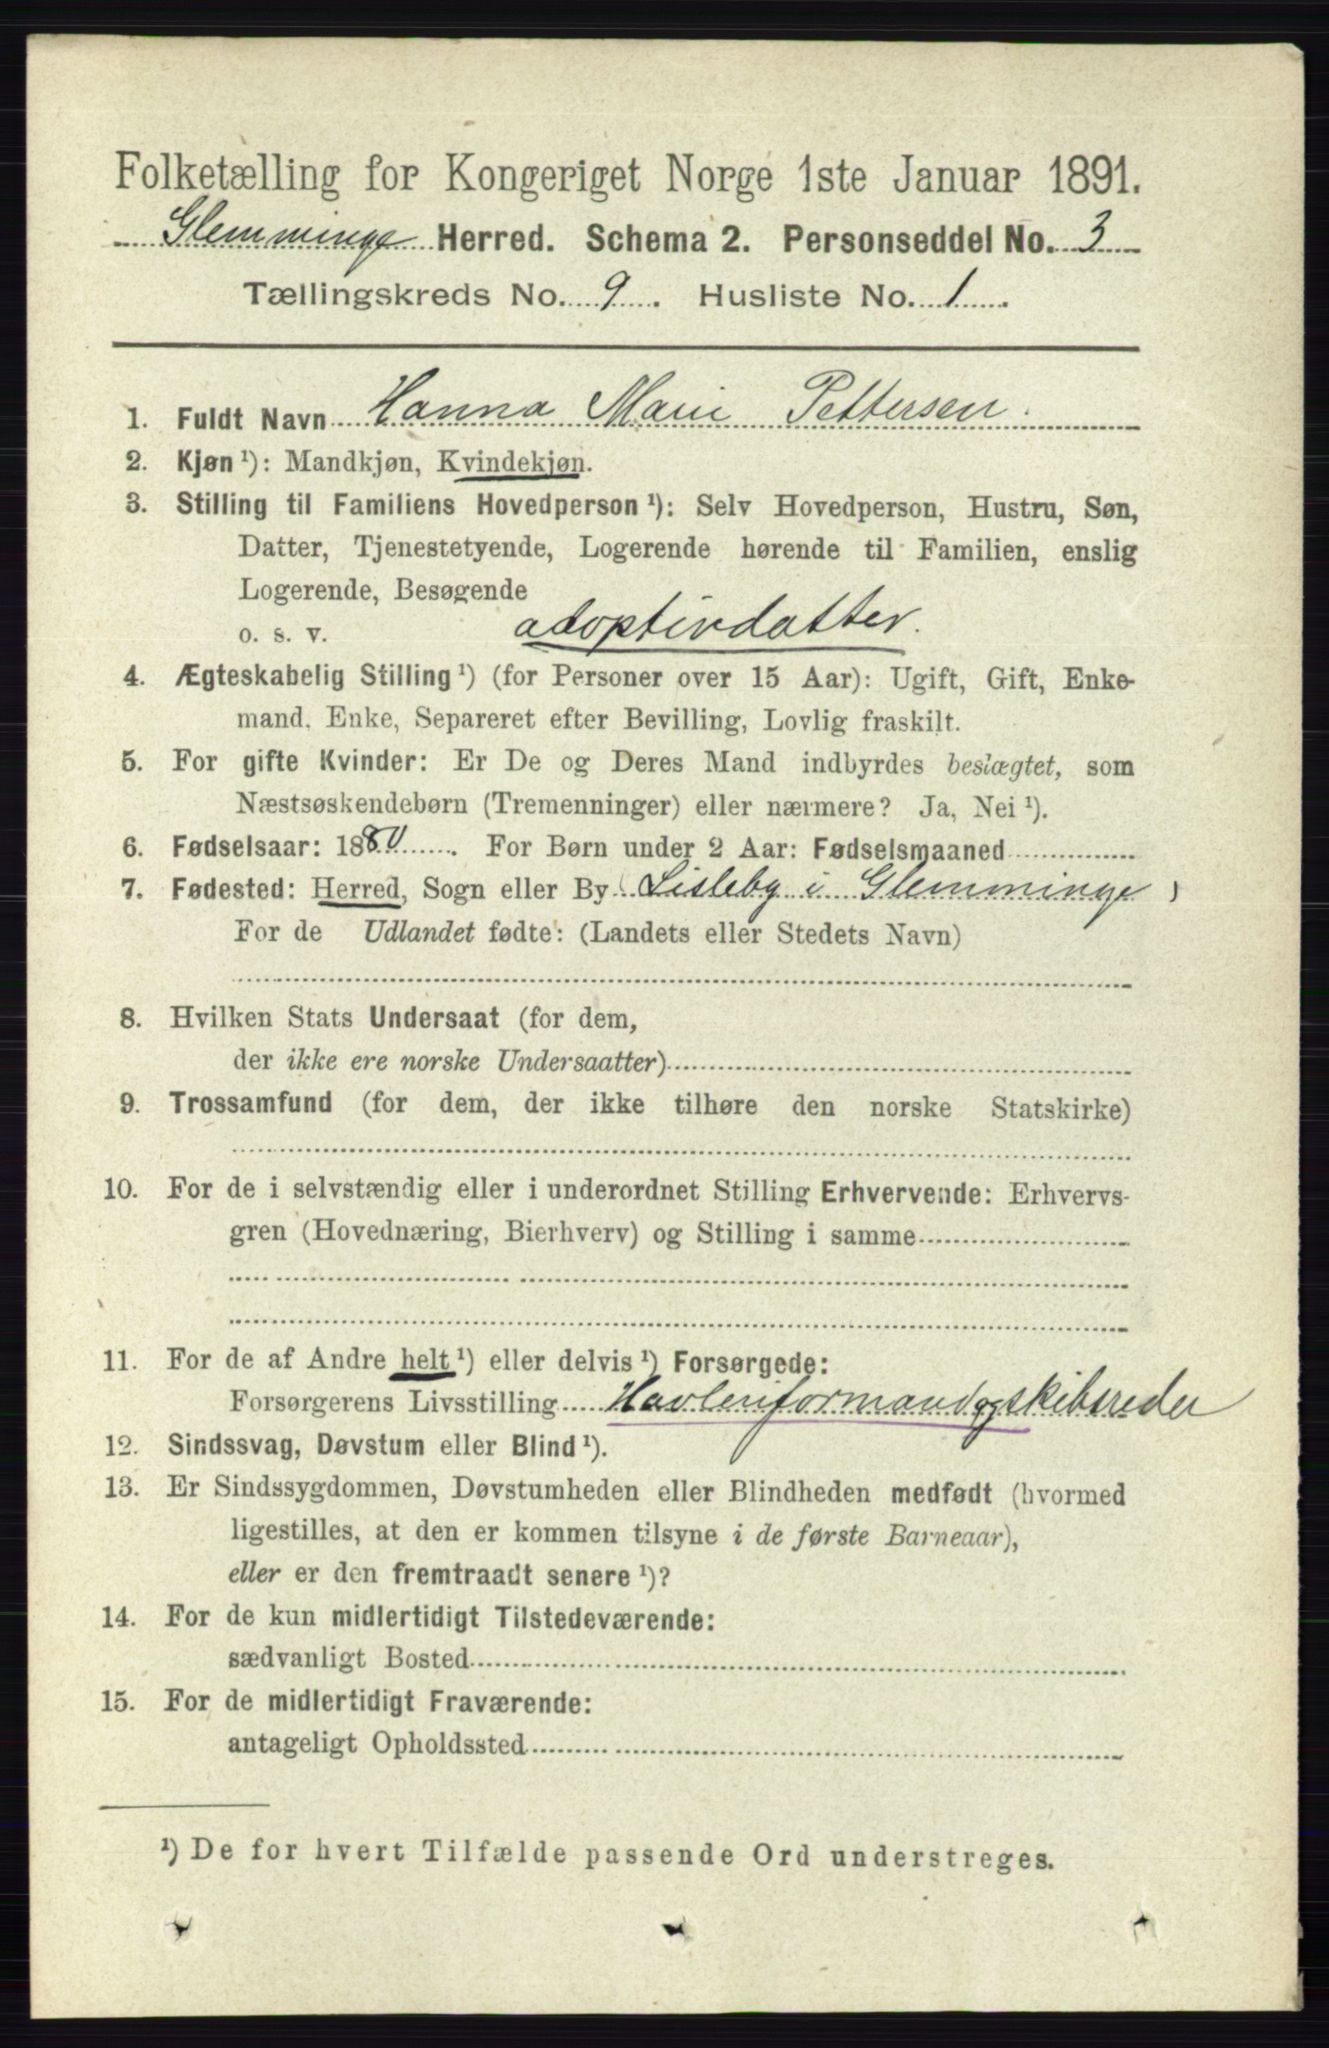 Folketælling for Kongeriget Norge 1ste Januar 1891.
Glemminge Herred. Schema 2. Personseddel No. 3
Tællingskreds No. 9. Husliste No. 1.
1. Fuldt Navn Hanna Marie Pettersen.
2. Kjøn ¹): Mandkjøn, Kvindekjøn.
3. Stilling til Familiens Hovedperson ¹): Selv Hovedperson, Hustru, Søn,
Datter, Tjenestetyende, Logerende hørende til Familien, enslig
Logerende, Besøgende
o. s. v. adoptivdatter.
4. Ægteskabelig Stilling ¹) (for Personer over 15 Aar): Ugift, Gift, Enke-
mand, Enke, Separeret efter Bevilling, Lovlig fraskilt.
5. For gifte Kvinder: Er De og Deres Mand indbyrdes beslægtet, som
Næstsøskendebørn (Tremenninger) eller nærmere? Ja, Nei ¹).
6. Fødselsaar: 1880. For Børn under 2 Aar: Fødselsmaaned
7. Fødested: Herred, Sogn eller By (Lisleby i Glemminge)
For de Udlandet fødte: (Landets eller Stedets Navn)
8. Hvilken Stats Undersaat (for dem,
der ikke ere norske Undersaatter)
9. Trossamfund (for dem, der ikke tilhøre den norske Statskirke)
10. For de i selvstændig eller i underordnet Stilling Erhvervende: Erhvervs-
gren (Hovednæring, Bierhverv) og Stilling i samme
11. For de af Andre helt ¹) eller delvis ¹) Forsørgede:
Forsørgerens Livsstilling Høvleriformand og skibsreder
12. Sindssvag, Døvstum eller Blind ¹).
13. Er Sindssygdommen, Døvstumheden eller Blindheden medfødt (hvormed
ligestilles, at den er kommen tilsyne i de første Barneaar),
eller er den fremtraadt senere ¹)?
14. For de kun midlertidigt Tilstedeværende:
sædvanligt Bosted
15. For de midlertidigt Fraværende:
antageligt Opholdssted
¹) De for hvert Tilfælde passende Ord understreges.